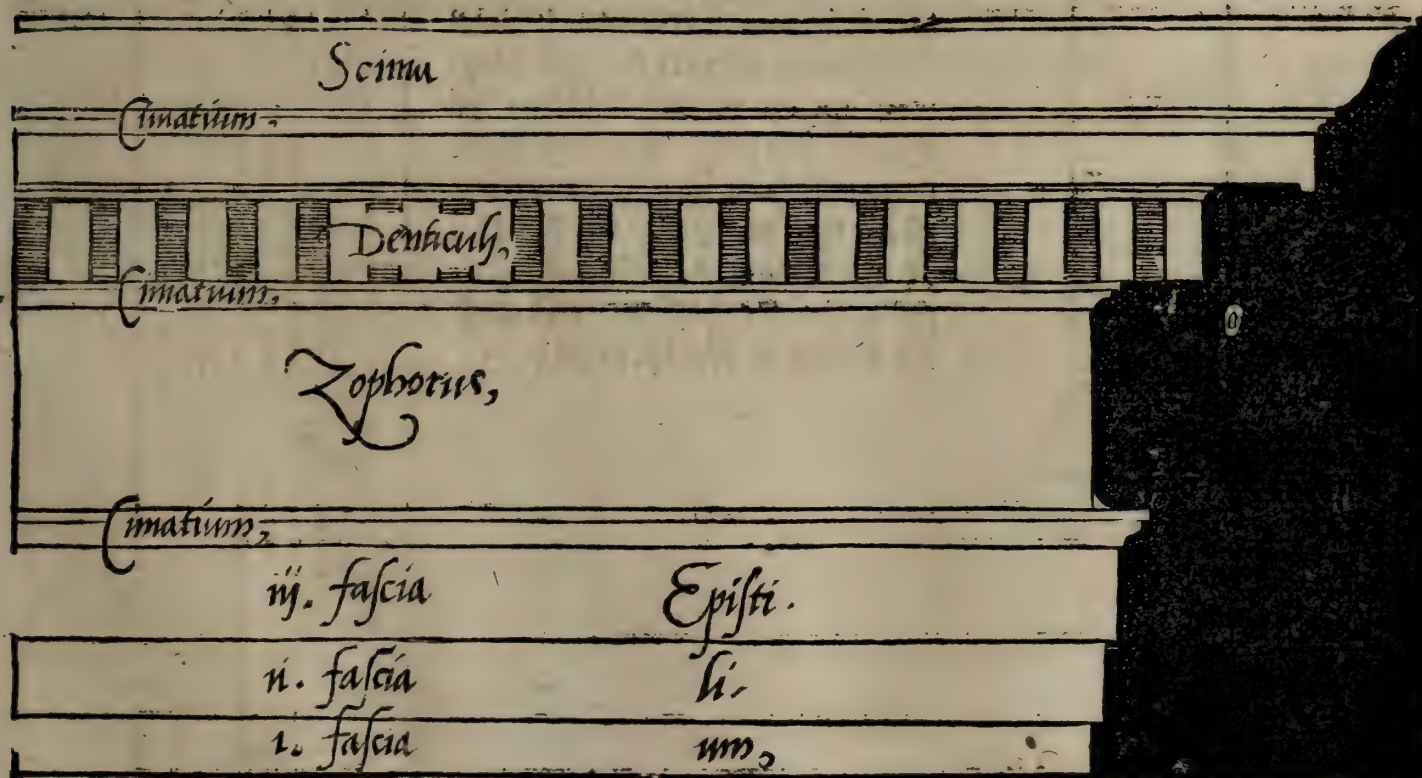 Scima
Cimatium.
Denticuli,
Cimatium,
Zophorus,
Cimatium,
iij. faſcia Epiſti.
ii. faſcia li.
i. faſcia um,